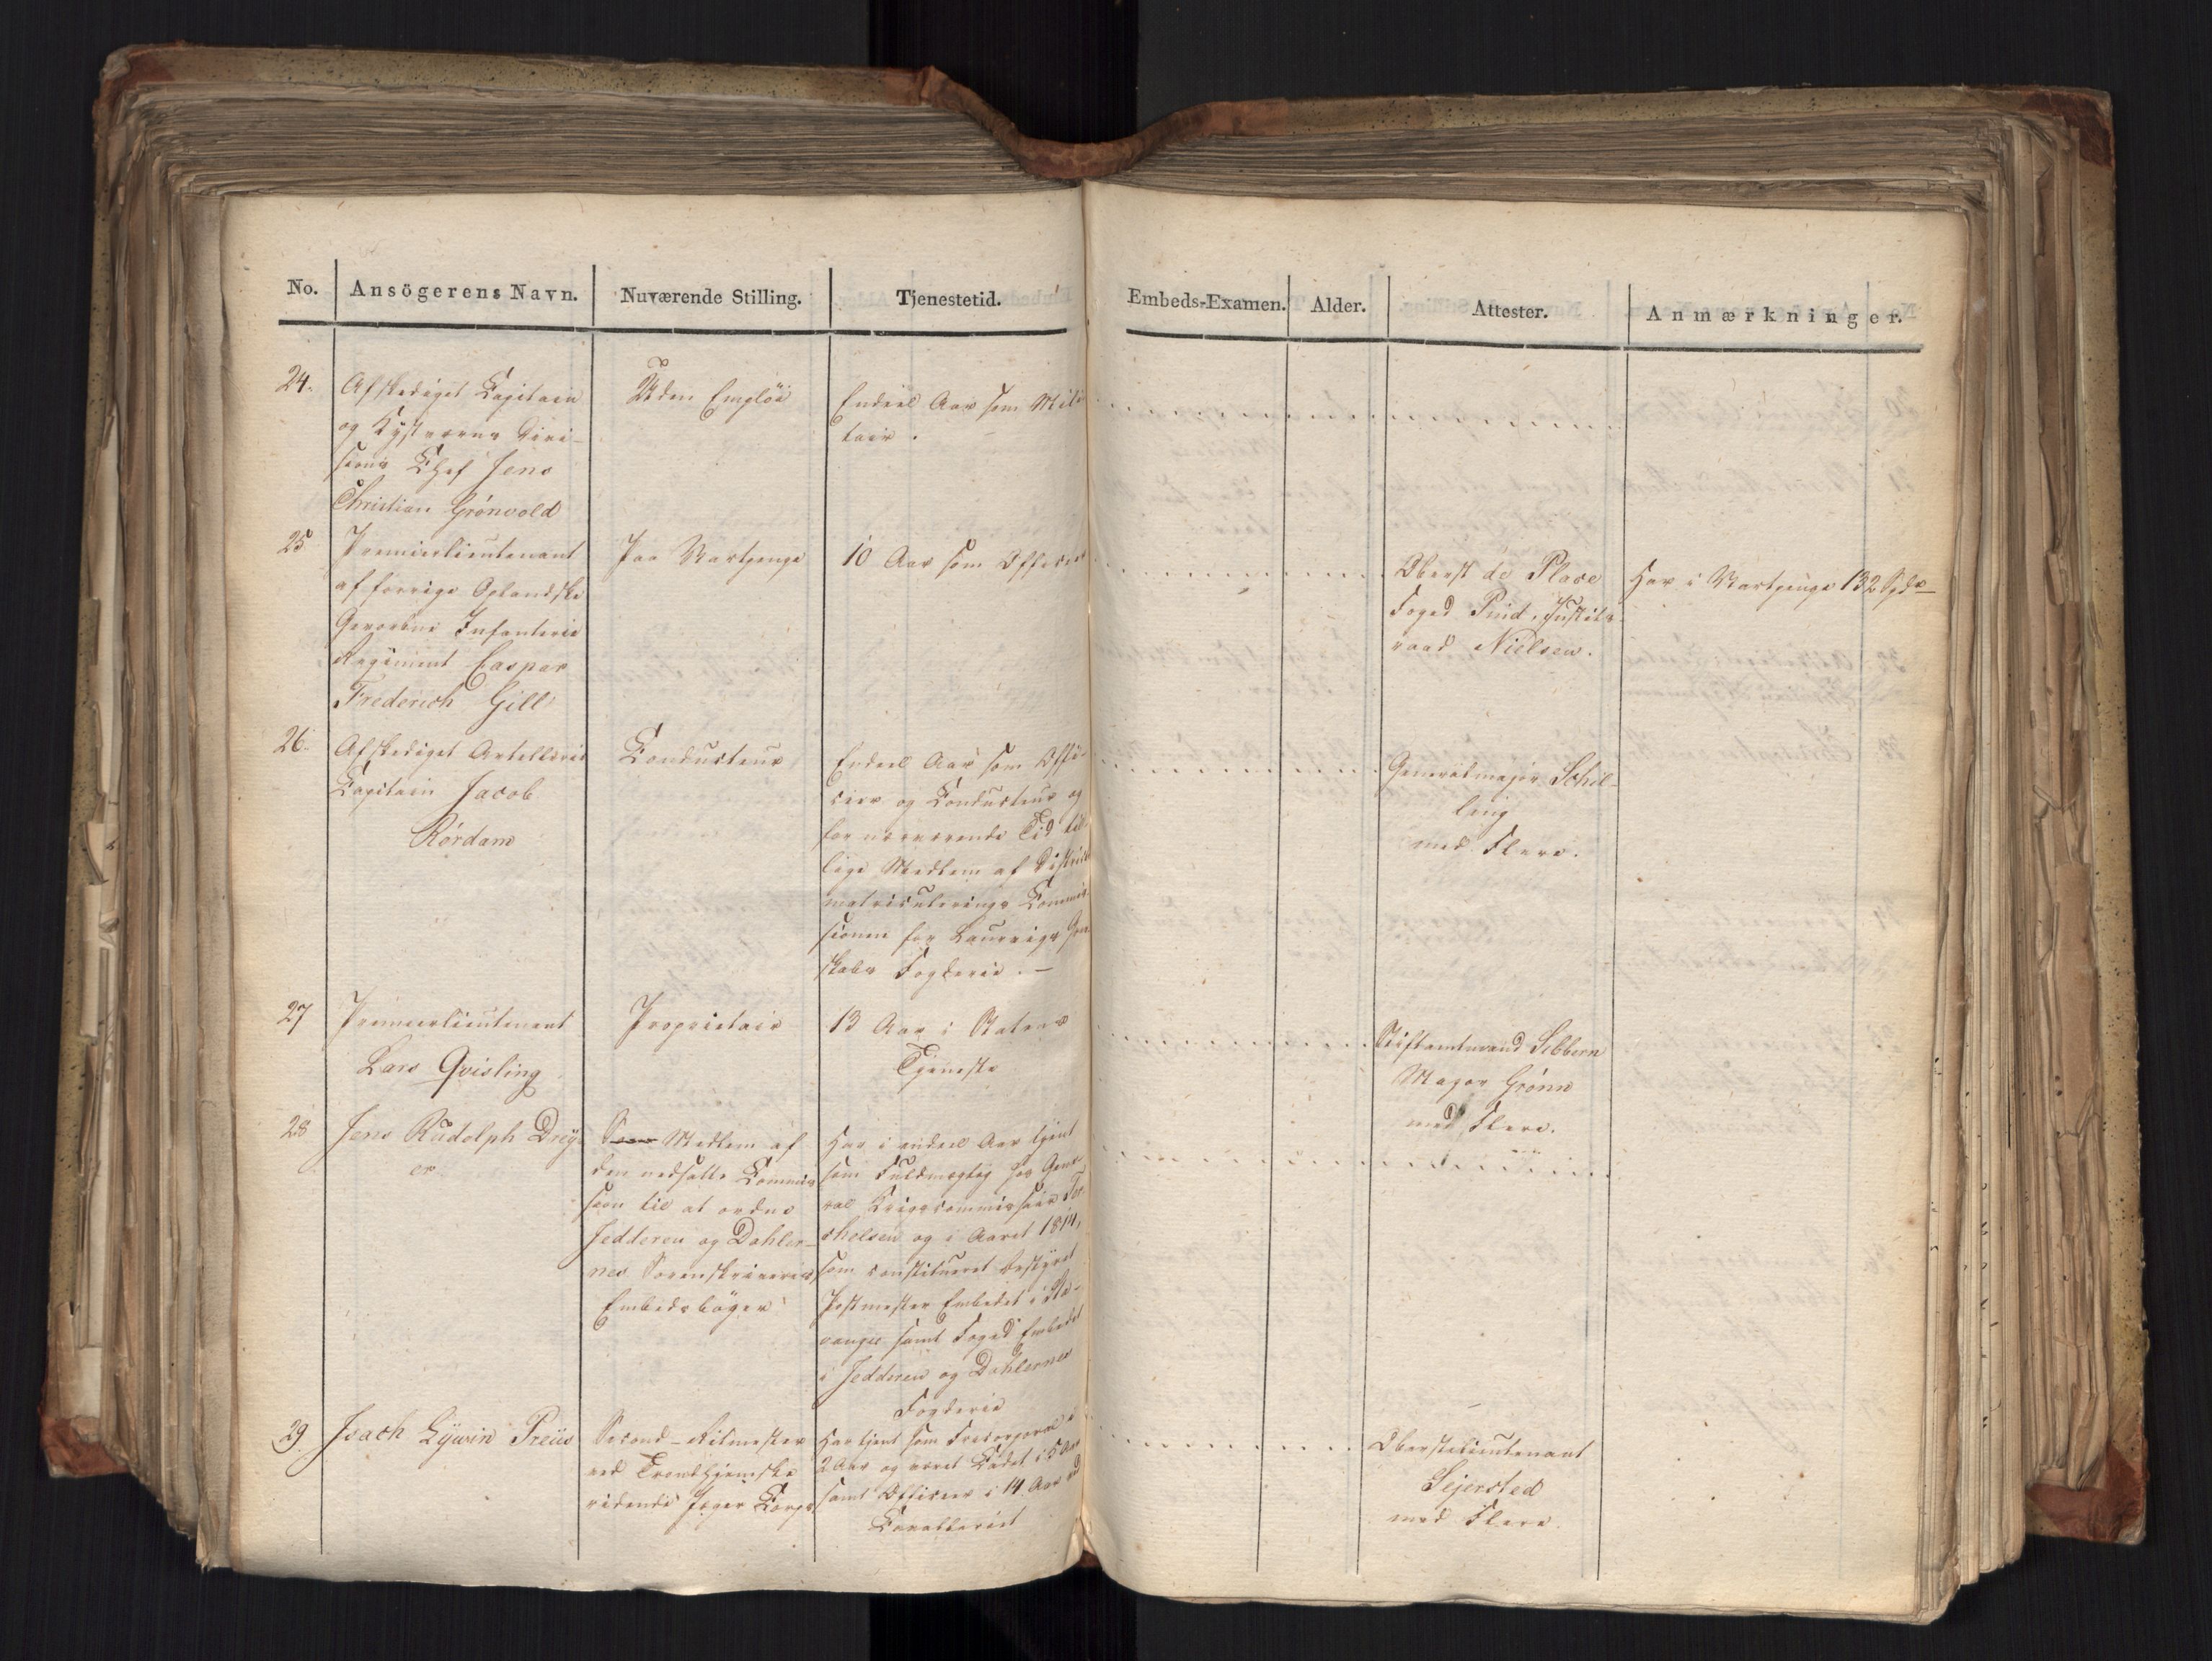 No. Ansögerens Navn. Nuværende Stilling. Tjenestetid. Embeds-Examen. Alder. Attester. Anmærkninger.
24. Afskediget Capitain
og Kystværns Divi-
sions Chef Jens
Christian Grönvold
Uden Emploi
Endeel Aar som Mili
tair.
25 Premierlieutenant
af forrige Oplandske
Gevorbne Infanterie
Regiment Caspar
Frederich Gill
Paa Vartpenge
10 Aar som Officier
Oberst de Place
Foged Pind, Justits
raad Nielsen.
Har i Vartpenge 132 Spdr
26. Afskediget Artellerie
Capitain Jacob
Rördam
Conducteur
Endeel Aar som Offi-
cier og Conducteur og
for nærværende Tid til
lige Medlem af Districts
matriculerings Commis
sionen for Laurvigs Grev
skabs Fogderie. —
Generalmajor Schil-
ling
med Flere.
27 Premierlieutenant
Lars Qvisling
Proprietair
13 Aar i Statens
Tjeneste
Stiftamtmand Sibbern
Major Grönn
med Flere.
28 Jens Rudolph Drey
er
Medlem af
den nedsatte Commis
sion til at ordne
Jedderen og Dahler-
nes Sorenskriveries
Embedsbøger
Har i endeel Aar tjent
som Fuldmægtig hos Gene
ral Krigscommissair
og i Aaret 1814,
som constitueret bestyret
Postmester Embedet i Sta-
vanger samt Foged Embedet
i Jedderen og Dahlernes
Fogderie
29. Isach Lÿsin Preüs
Second-Ritmester
ved Trondhjemske
ridende Jæger Corps
Har tjent som Frecorporal i
2 Aar og været Cadet i 5 Aar
samt Officier i 14 Aar ved
Cavalleriet
Oberstelieutenant
Sejersted
med Flere.